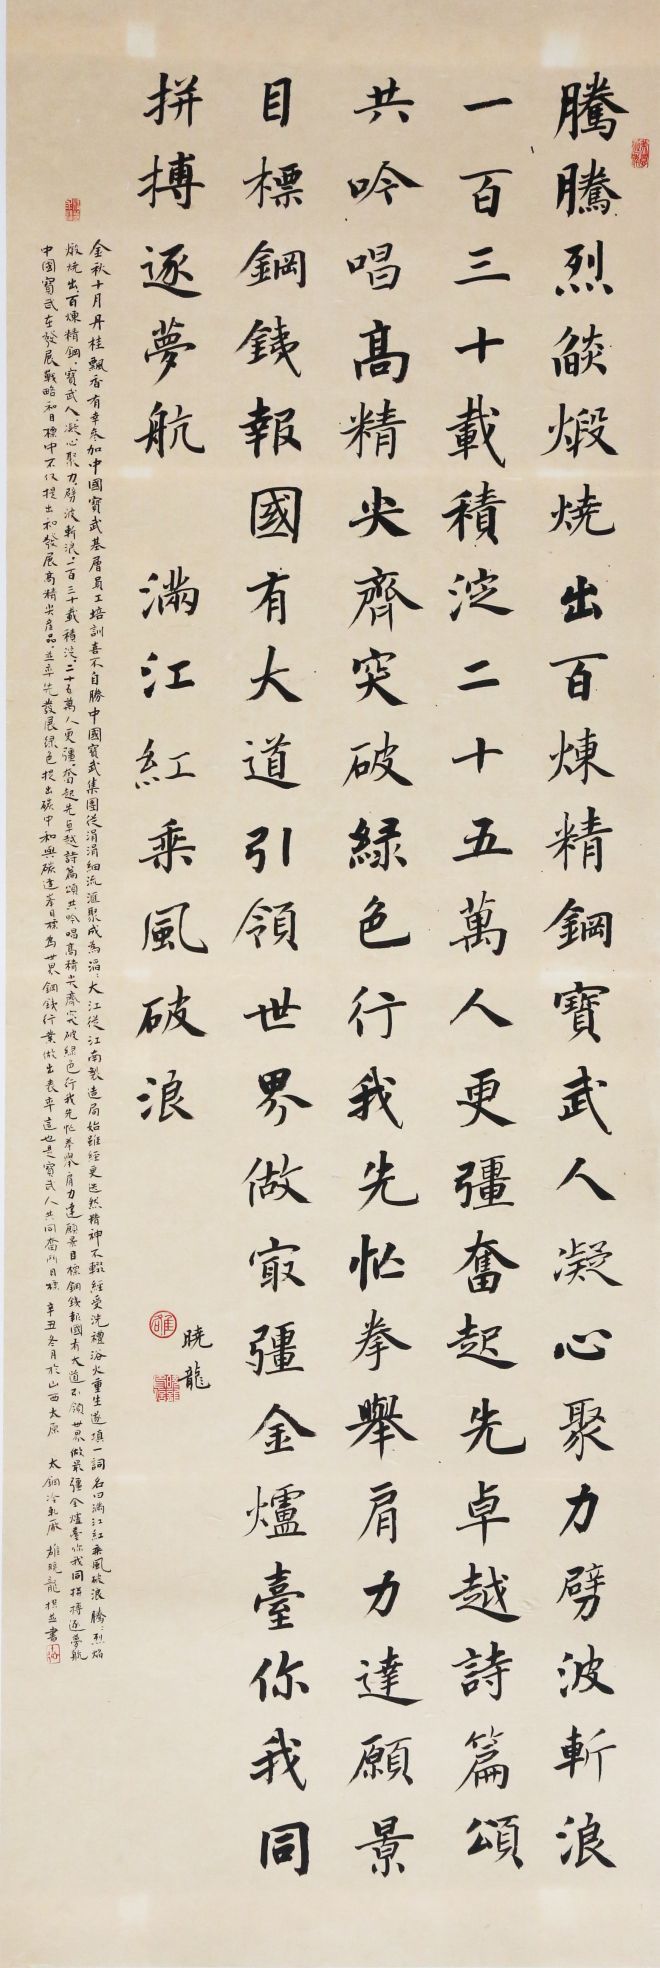 騰騰烈燄煅燒出百煉精鋼寶武人凝心聚力劈波斬浪
一百三十載積淀二十五萬人更彊奮起先卓越詩篇頌
共吟唱高精尖齊突破綠色行我先忙拳舉肩力達願景
目標鋼銕報國有大道引領世界做冣彊金爐臺你我同
拼搏逐夢航 滿江紅乘風破浪
曉龍
金秋十月丹桂飄香有幸參加中國寶武基層員工培訓喜不自勝中國寶武集團從涓涓細流滙聚成為滔〻大江從江南製造局始雖經更迭然精神不輟經受洗禮浴火重生遂填一詞名曰滿江紅乘風破浪騰〻烈焰
煅燒出百煉精鋼寶武人凝心聚力劈波斬浪一百三十載積淀二十五萬人更彊奮起先卓越詩篇頌共吟唱高精尖齊突破綠色行我先忙拳舉肩力達願景目標鋼銕報國有大道引領世界做最彊金爐臺你我同拼搏逐夢航
中國寶武在發展戰略和目標中不仅提出和發展高精尖產品並率先發展綠色提出碳中和與碳達峯目標為世界鋼銕行業做出表率這也是寶武人共同奮鬥目標 辛丑冬月於山西太原 太鋼冷軋廠 雒曉龍撰並書